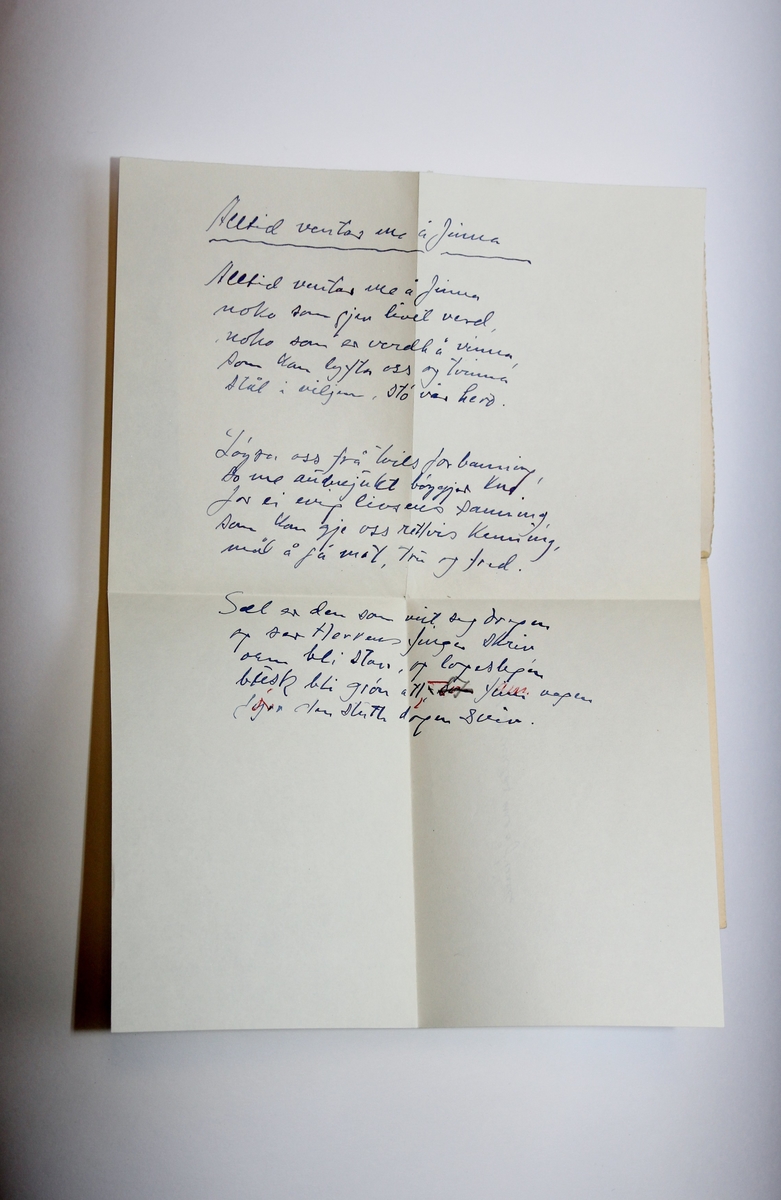 Alltid ventar me å finna
Alltid ventar me å finna
noko som gjev livet verd,
noko som er verdt å vinna,
som kan lyfta oss og tvinna
stål i viljen, stø vår ferd.
Løysa oss frå tvils forbanning,
so me audmjukt bøygjer kne
for ei evig livsens sanning,
som kan gje oss rettvis kenning,
mål å gå mot, tru og fred.
Sæl er den som veit seg dregen
og ser Herrens finger skriv
bli stav, og
beisk bli grøn att vegen
den slutt dagen sviv.